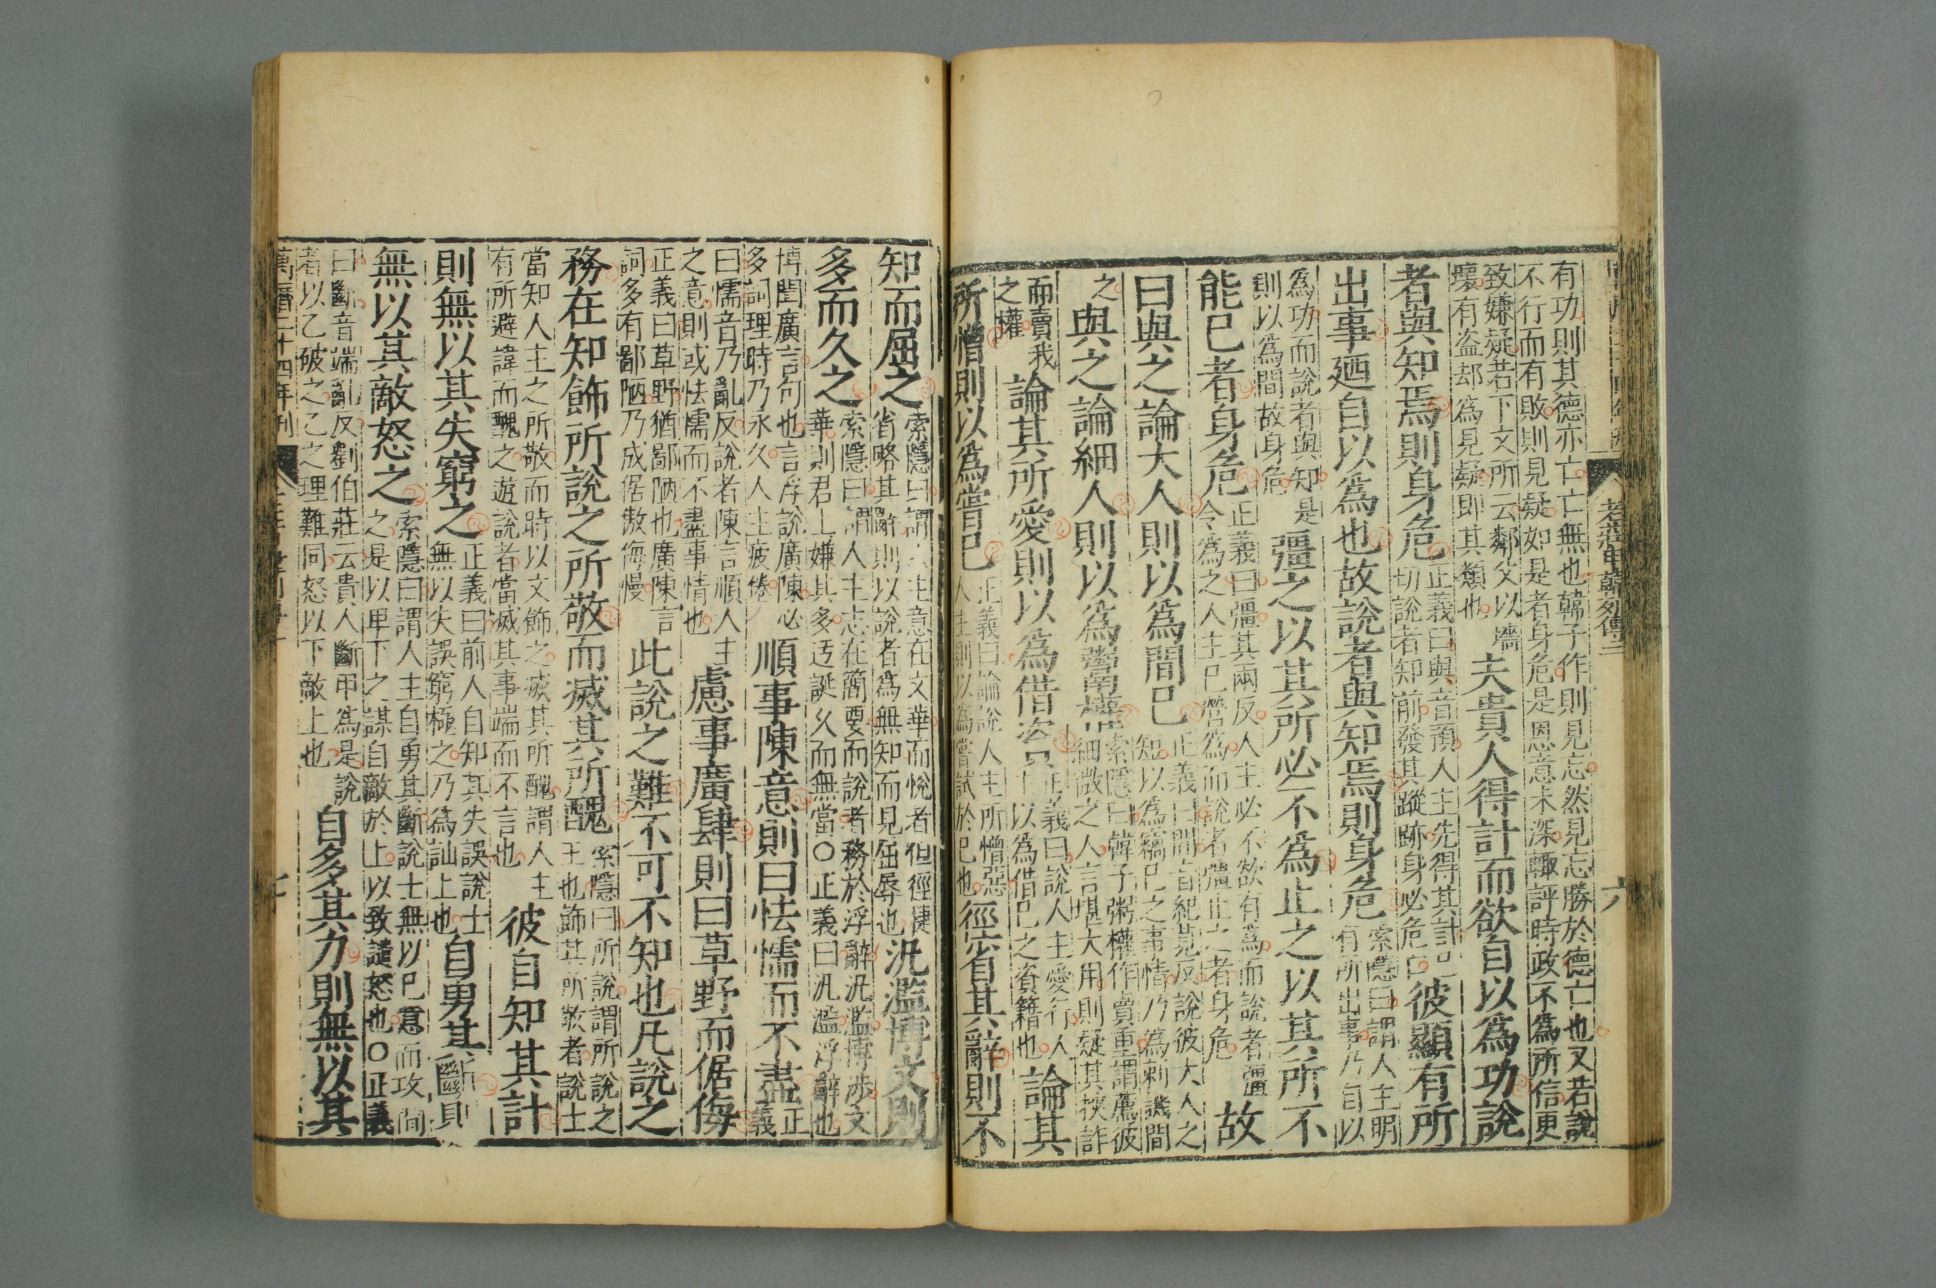 老莊申韓列傳三
六
有功則其德亦亡亡無也韓子作則見忘然見忘勝於德亡也又若說
不行而有敗則見疑如是者身危是恩意未深輙評時政不為所信更
致嫌疑若下文所云鄰父以墻
壞有盗却為見疑即其類也
夫貴人得計而欲自以為功說
者與知焉則身危
正義曰與音預人主先得其計已
切說者知前發其蹤跡身必危亡
彼顯有所
出事廼自以為也故說者與知焉則身危
索隱曰謂人主明
有所出事乃自以
為功而說者與知是
則以為間故身危
彊之以其所必不為止之以其所不
能已者身危
正義曰彊其兩反人主必不欲有為而說者彊
令為之人主已營為而說者彊止之者身危
故
曰與之論大人則以為間已
正義曰間音紀莧反說彼大人之
短以為竊已之事情乃為刺譏間
之
與之論細人則以為鬻權
索隱曰韓子粥權作賣重謂薦彼
細微之人言堪大用則疑其挾詐
而賣我
之權
論其所愛則以為借資
正義曰說人主愛行人
主以為借已之資籍也
論其
所憎則以為嘗已
正義曰論說人主所憎惡
人主則以為嘗試於已也
徑省其辭則不
知而屈之
索隱曰謂人主意在文華而說者但徑捷
省略其辭則以說者為無知而見屈辱也
汎濫博文則
多而久之
索隱曰謂人主志在簡要而說者務於浮辭汎濫博涉文
華則君上嫌其多迂誕久而無當○正義曰汎濫浮辭也
博閏廣言句也言浮說廣陳必
多詞理時乃永久人主疲倦
順事陳意則曰怯懦而不盡
正
義
曰懦音乃亂反說者陳言順人主
之意則或怯懦而不盡事情也
慮事廣肆則曰草野而倨侮
正義曰草野猶鄙陋也廣陳言
詞多有鄙陋乃成倨傲侮慢
此說之難不可不知也凡說之
務在知飾所說之所敬而滅其所醜
索隱曰所說謂所說之
主也飾其所敬者說士
當知人主之所敬而時以文飾之滅其所醜謂人主
有所避諱而醜之遊說者當滅其事端而不言也
彼自知其計
則無以其失窮之
正義曰前人自知其失誤說士
無以失誤窮極之乃為訕上也
自勇其斷則
無以其敵怒之
索隱曰謂人主自勇其斷說士無以已意而攻間
之是以卑下之謀自敵於上以致譴怒也○正義
曰斷音端亂反劉伯莊云貴人斷甲為是說
者以乙破之乙之理難同怒以下敵上也
自多其力則無以其
萬曆二十四年刊
七